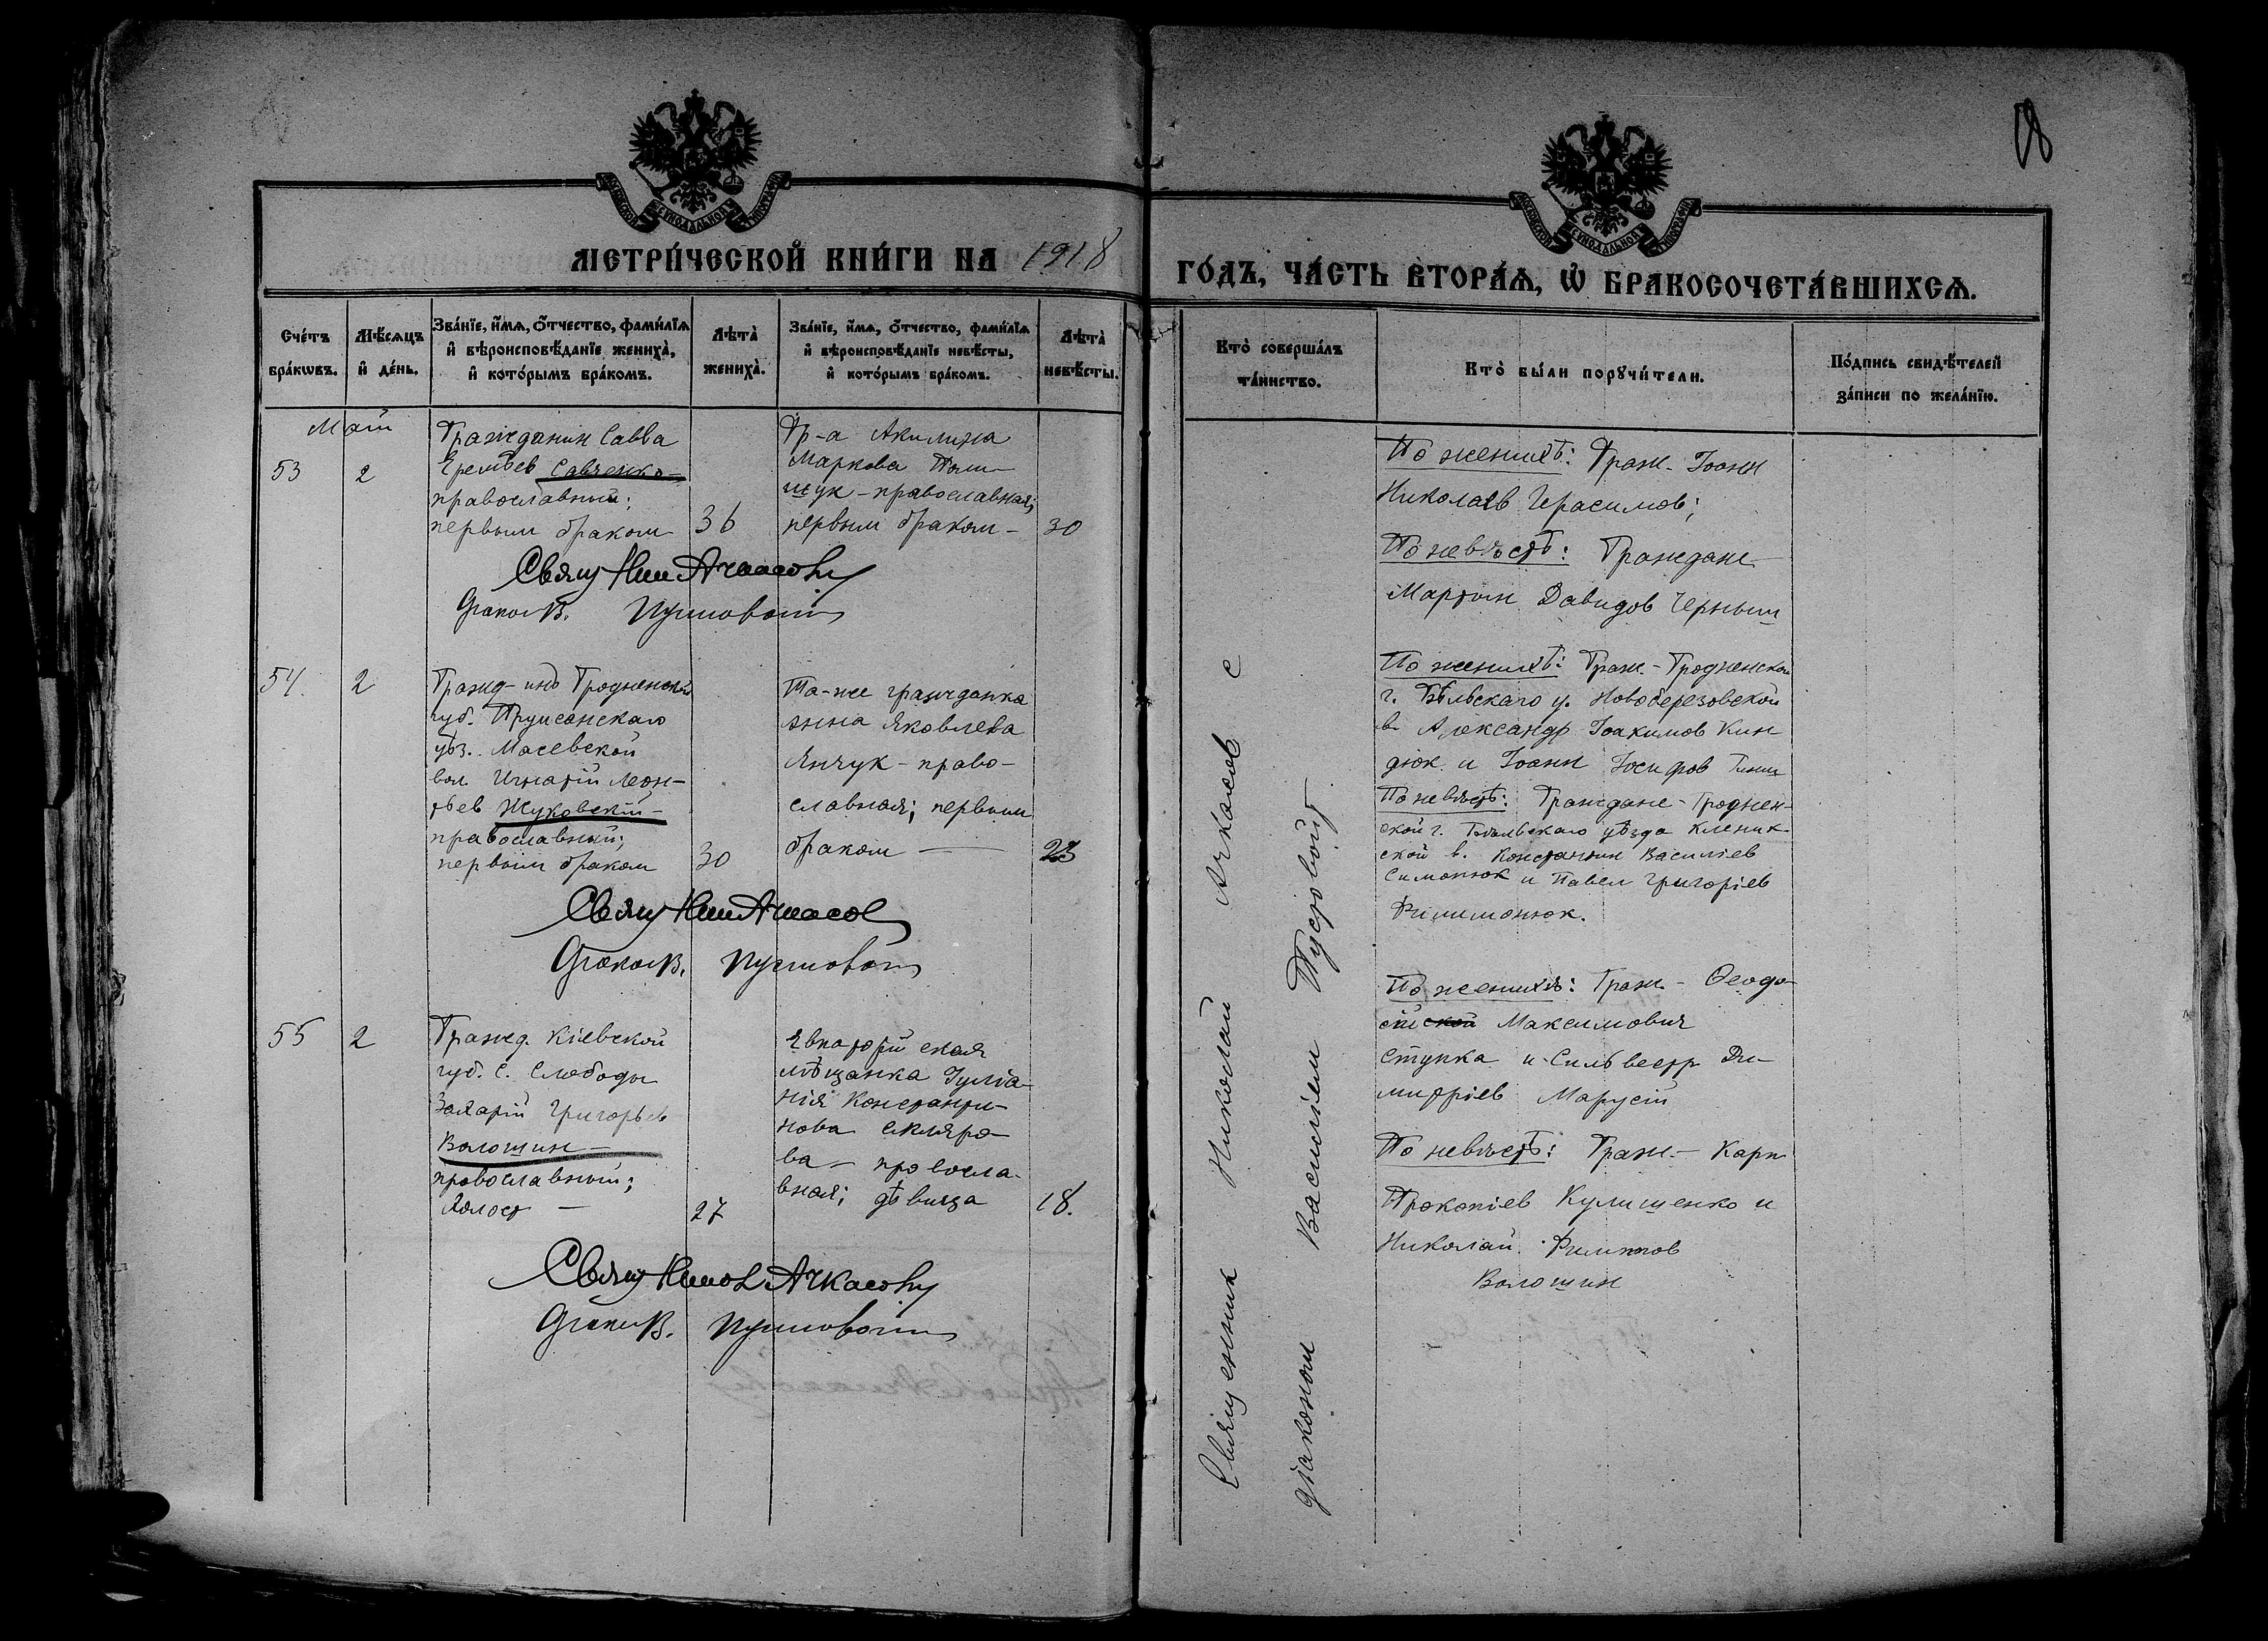 18
МЕТРИ́ЧЕСКОЙ КНИ́ГИ НА 1918
ГО́ДЪ, ЧА́СТЬ ВТОРА́Ѧ, Ѽ БРАКОСОЧЕТА́ВШИХСѦ.
Сче́тъ
бра́кѡвъ.
Мѣ́сѧцъ
и҆ де́нь.
Зва́нїе, и҆́мѧ, ѻ҆́тчество, фами́лїѧ
и҆ вѣроисповѣ́данїе жениха̀,
и҆ кото́рымъ бра́комъ.
Лѣта̀
жениха̀.
Зва́нїе, и҆́мѧ, ѻ҆́тчество, фами́лїѧ
и҆ вѣроисповѣ́данїе невѣ́сты,
и҆ кото́рымъ бра́комъ.
Лѣта̀
невѣ́сты.
Кто̀ соверша́лъ
та́инство.
Кто̀ бы́ли порꙋчи́тели.
По́дпись свидѣ́телей
за́писи по жела́нїю.
Май
53
2
Гражданин Савва
Еремѣев Савченко
православный;
первым браком
36
Гр-а Акилина
Маркова Поли-
щук - православная;
первым браком -
30
Свящ Ник Ачкасовъ
Диакон В. Пустовойт
По женихѣ: Граж- Іоанн
Николаев Герасимов;
По невѣстѣ: Граждане
Мартын Давидов Черный
54.
2
Гражд-инъ Гродненской
губ. Пружанскаго
уѣз. Масевской
вол Игнатій Леон-
тьев Жуковскій
православный;
первым браком
30
Та-же гражданка
Анна Яковлева
Янчук - право-
славная; первым
браком
23
Свящ Ник Ачкасов
Диакон В. Пустовойт
По женихѣ: Граж- Гродненской
г. Бѣльскаго у. Новоберезовской
в. Александр Іоакимов Кин
дюк и Іоанн Іосифов
По невѣстѣ: Граждане - Гроднен-
ской г. Бѣльскаго уѣзда Кленик-
ской в. Константин Василіев
Симонюк и Павел Григоріев
Филимонюк.
55
2
Гражд. Кіевской
губ. С. Слободы
Захарій Григорьев
Волошин
православный;
Холост
27
Евпаторійская
мѣщанка Іуліа-
нія Константи-
нова Скляро-
ва - правосла-
вная; дѣвица
18.
Свящ Никол Ачкасовъ
Диакон В. Пустовойт
По женихѣ: Граж - Ѳеодо-
сій ской Максимович
Ступка и Сильвестр Ди-
митріев Марусій
По невѣстѣ: Граж - Карп
Прокопіев Кулишенко и
Николай Филиппов
Волошин
Священник Николай Ачкасов с
діаконом Василіем Пустовойт